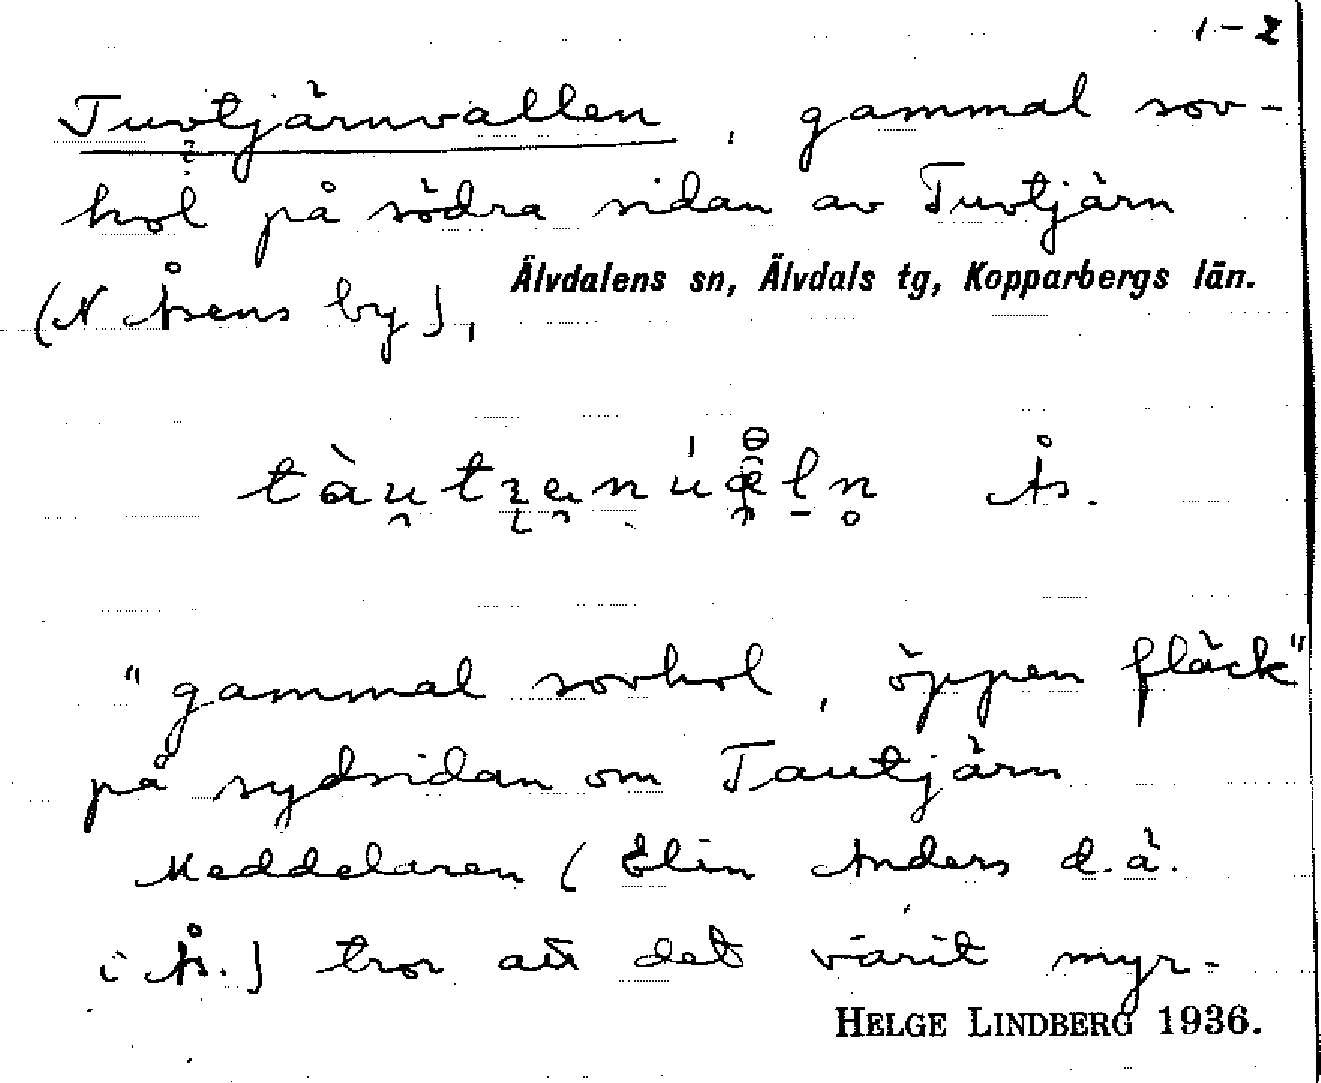 1-2
Tuvtjärnvallen, gammal sov-
hol på södra sidan av Tuvtjärn
(N Åsens by), Älvdalens sn, Älvdals tg, Kopparbergs län.
Ås.
"gammal sovhol, öppen fläck"
på sydsidan om Tautjärn
Meddelaren (Elin Anders d.ä.
i Ås.) tror att det varit myr-
HELGE LINDBERG 1936.